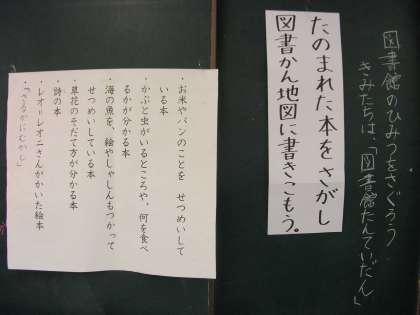 図書館のひみつをさぐろう
きみたちは、「図書館たんていだん」
たのまれた本をさがし
図書かん地図に書きこもう。
・お米やパンのことを せつめいして
いる本
・かぶと虫がいるところや、何を食べ
るかが分かる本
・海の魚を、絵やしゃしんもつかって
せつめいしている本
・草花のそだて方が分かる本
・詩の本
・レオ=レオニさんがかいた絵本
・「さるかにむかし」